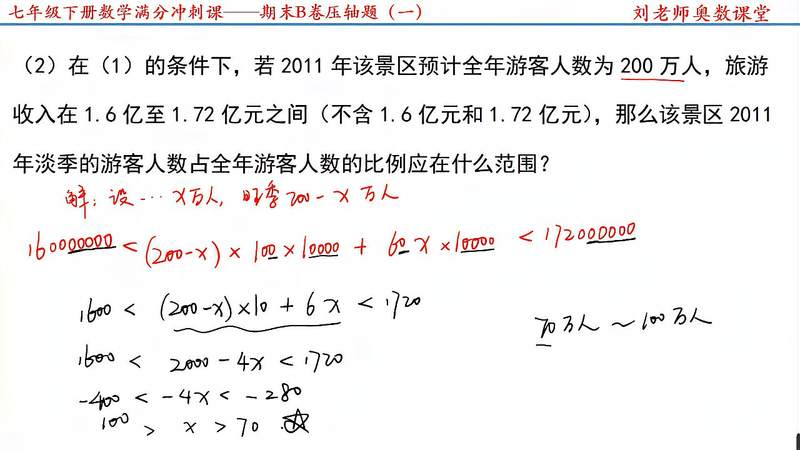 七年级下册数学满分冲刺课——期末B卷压轴题（一）
刘老师奥数课堂
（2）在（1）的条件下，若 2011 年该景区预计全年游客人数为 200 万人，旅游
收入在 1.6 亿至 1.72 亿元之间（不含 1.6 亿元和 1.72 亿元），那么该景区 2011
年淡季的游客人数占全年游客人数的比例应在什么范围？
解：设…x万人，旺季200-x万人
160000000<(200-x)×100×10000+60x×10000<172000000
1600<(200-x)×10+6x<1720
70万人~100万人
1600<2000-4x<1720
-400<-4x<-280
100>x>70